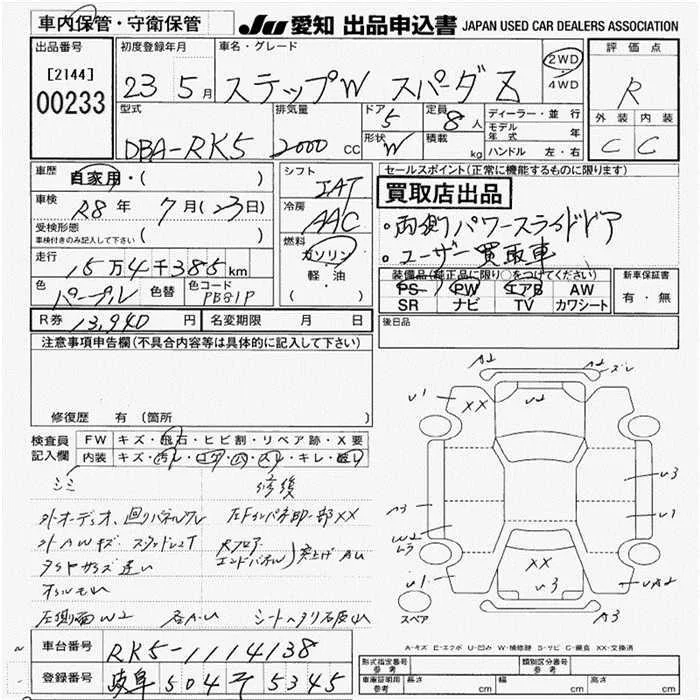 車内保管・守衛保管
JU 愛知 出品申込書 JAPAN USED CAR DEALERS ASSOCIATION
出品番号
[2144]
00233
初度登録年月
23 5月
車名・グレード
ステップW スパーダ Z
2WD
4WD
評価点
R
外装 内装
C C
型式
DBA-RK5
排気量
2000 cc
ドア
5
形状
W
定員
8人
積載
kg
ディーラー・並行
モデル年式 年
ハンドル 左・右
車歴
自家用・( )
車検
R8年 7月(23日)
受検形態
車検付きのみ記入して下さい ( )
走行
15万4千385km
色
パープル
色替
色コード
PB81P
シフト
IAT
冷房
AAC
燃料
ガソリン
軽・油
( )
セールスポイント(正常に機能するものに限ります)
買取店出品
・両側パワースライドドア
・ユーザー買取車
装備品(純正品に限り○をつけてください)
PS PW エアB AW
SR ナビ TV カワシート
新車保証書
有・無
R券 13,940円
名変期限 月 日
後日品
注意事項申告欄(不具合内容等は具体的に記入して下さい)
修復歴 有(箇所
検査員
記入欄
FW キズ・飛石・ヒビ割・リペア跡・X要
内装 キズ・汚レ・コゲ・穴・スレ・キレ・破レ
シミ 修復
外オーディオ、回りパネルナシ
外AWキズ スタッドレスT
タイヤサイズ違い
オイルモレ
左側面W2 各A・U シートヘタリ
RフロアエンドパネルI突上げAU
A2
A2
ズレ
U1
XX
U2
A3
W2
ムラ
U3
U1
U1
XX
U3
UA2
A3
スペア
A・キズ E・エクボ U・凹み W・補修跡 S・サビ C・腐食 XX・交換済
車台番号
RK5-1114138
登録番号
岐阜 504 そ 5345
形式指定番号
参考
類別区分番号
参考
車庫証明用
参考
長さ cm
幅 cm
高さ cm